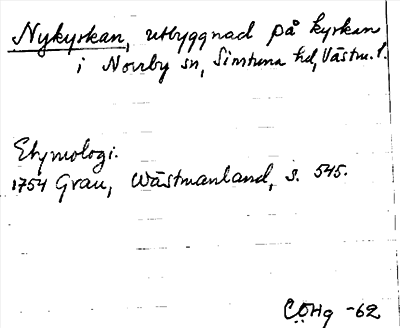 Nykyrkan, utbyggnad på kyrkan
i Norrby sn, Simtuna hd, Västm. l.
Etymologi.
1754 Grau, Wästmanland, s. 545.
CÖHg -62